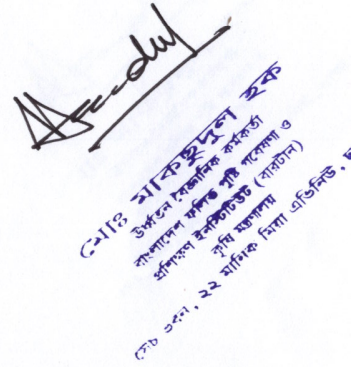 মোঃ মাকছুদুল হক
উর্ধ্বতন বৈজ্ঞানিক কর্মকর্তা
বাংলাদেশ ফলিত পুষ্টি গবেষণা ও
প্রশিক্ষণ ইনস্টিটিউট (বারটান)
কৃষি মন্ত্রণালয়
সেচ ভবন, ২২ মানিক মিয়া এভিনিউ,